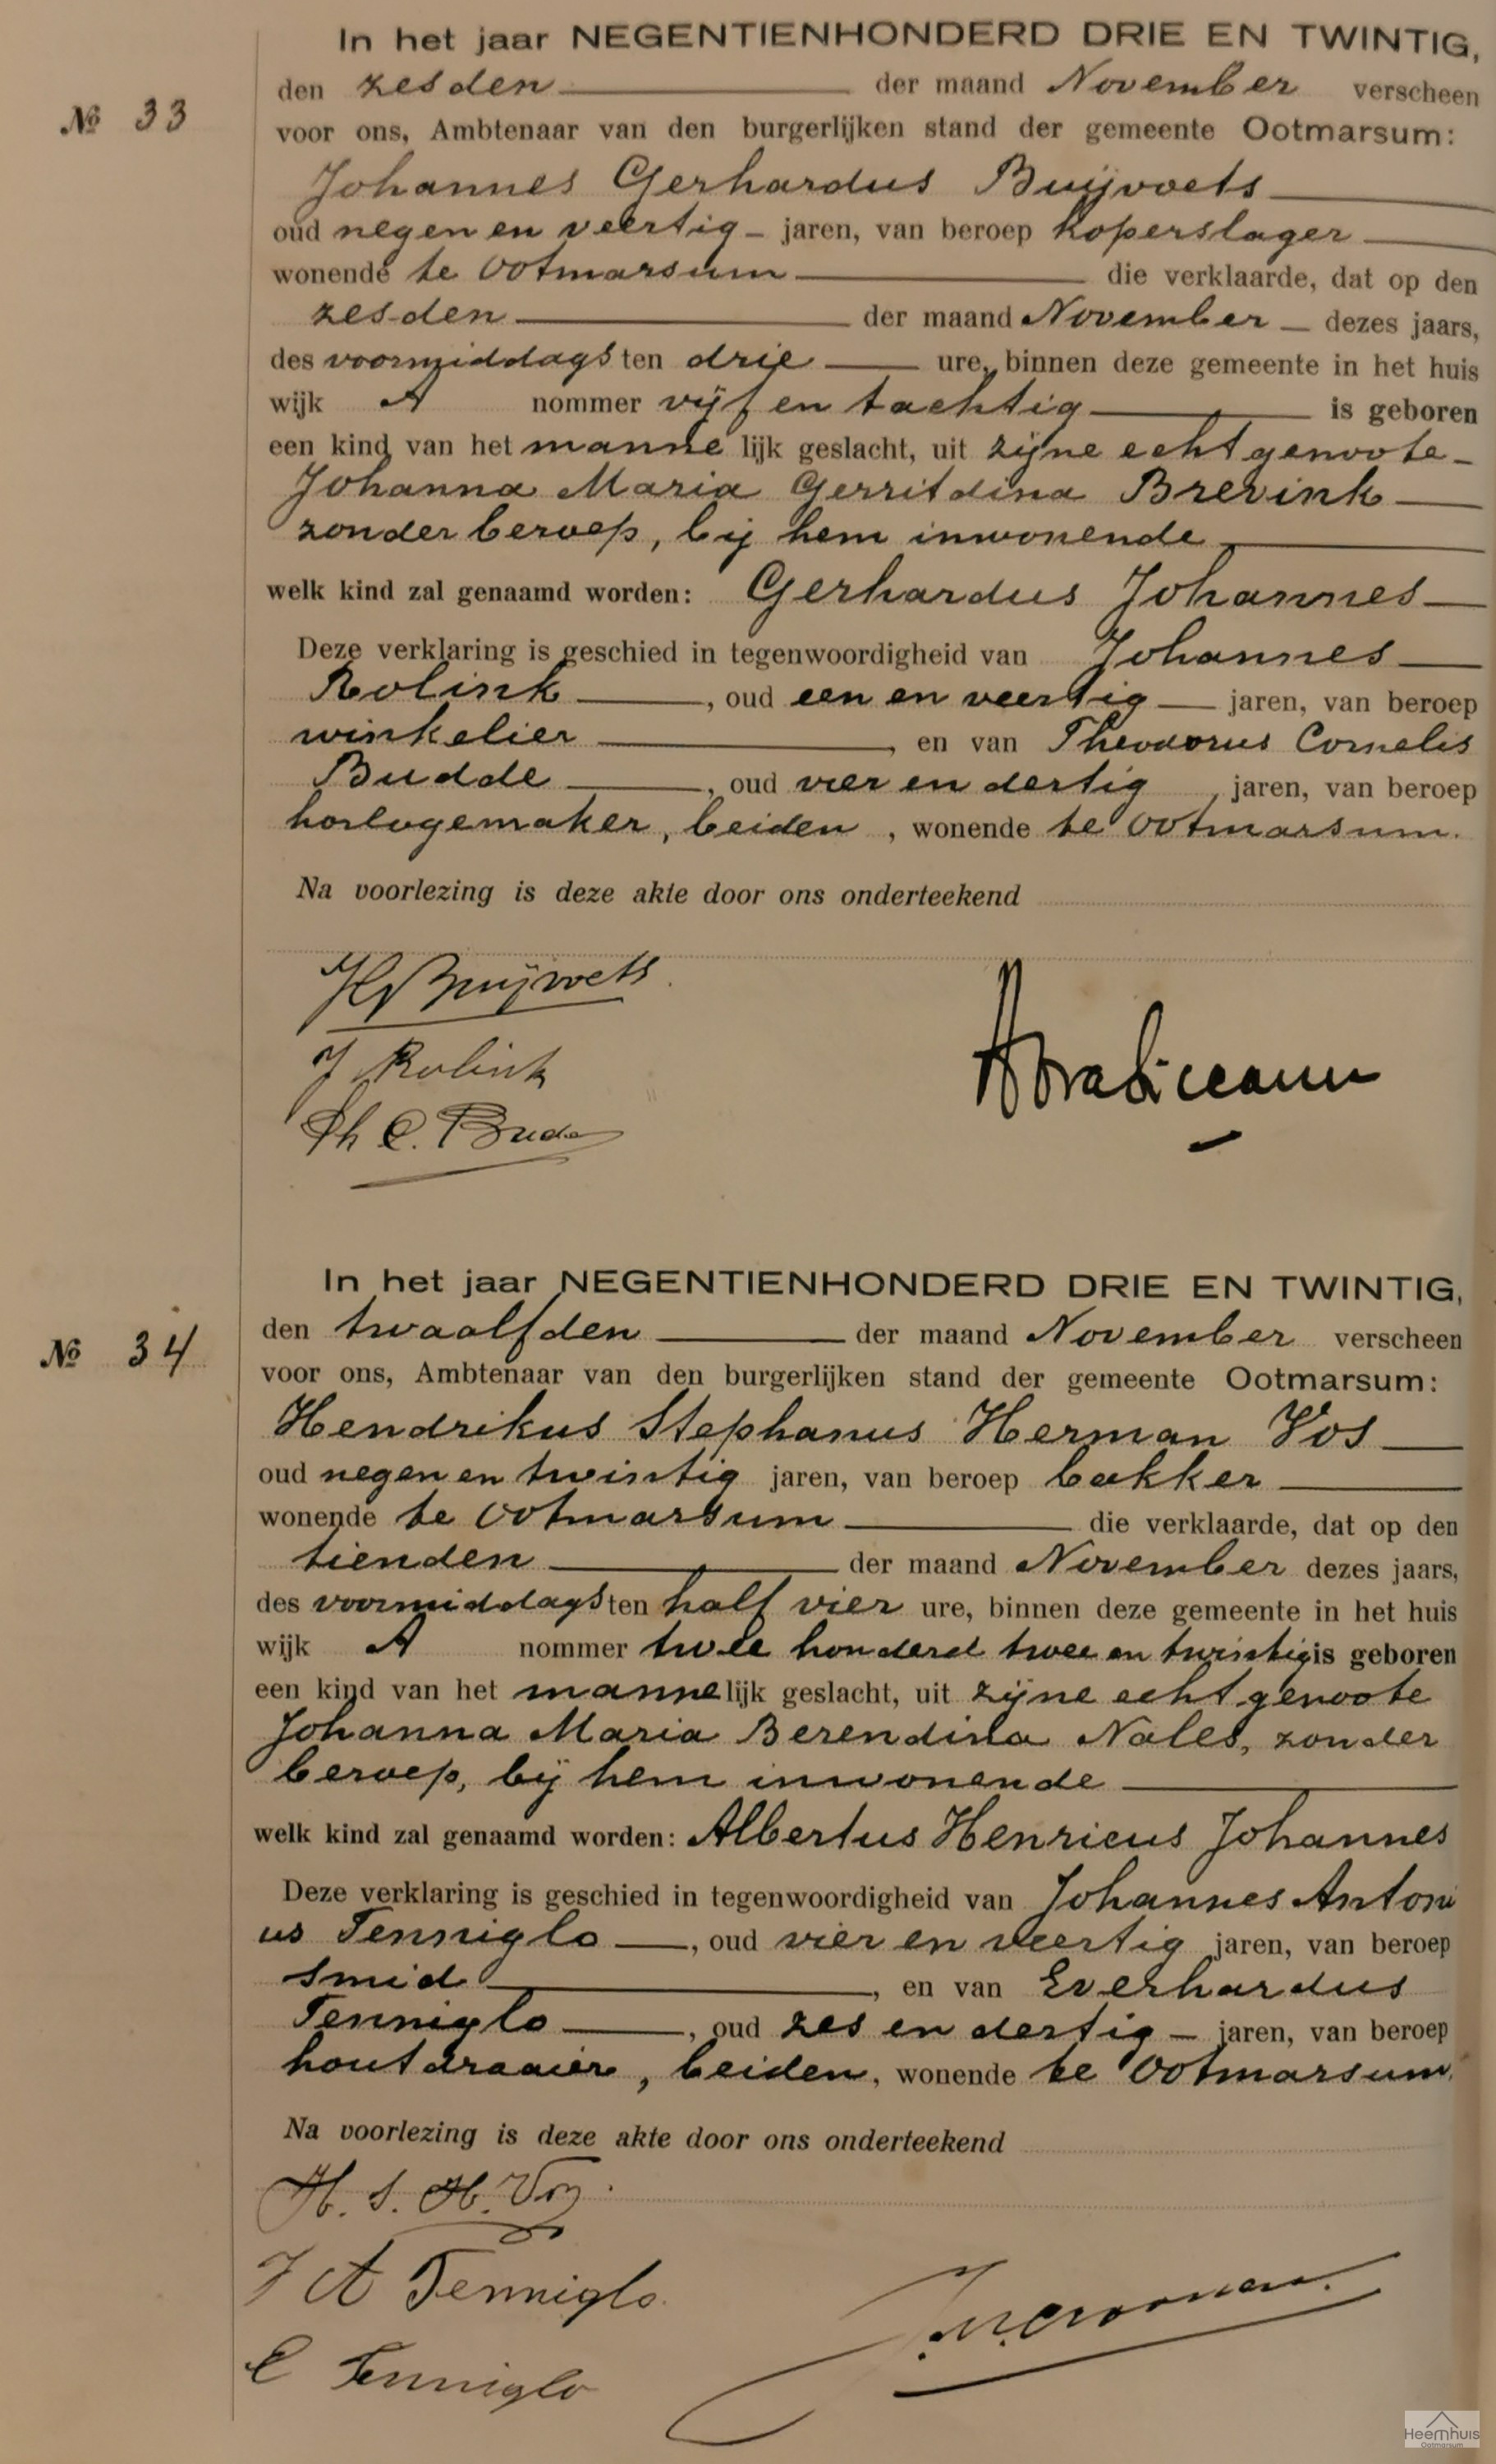 In het jaar NEGENTIENHONDERD DRIE EN TWINTIG,
den zesden der maand November verscheen
№ 33
voor ons, Ambtenaar van den burgerlijken stand der gemeente Ootmarsum:
Johannes Gerhardus Buijvoets
oud negen en veertig jaren, van beroep koperslager
wonende te Ootmarsum die verklaarde, dat op den
zesden der maand November dezes jaars,
des voormiddags ten drie ure, binnen deze gemeente in het huis
wijk A nommer vijf en tachtig is geboren
een kind van het mannelijk geslacht, uit zijne echtgenoote
Johanna Maria Gerritdina Brevink
zonder beroep, bij hem inwonende
welk kind zal genaamd worden: Gerhardus Johannes
Deze verklaring is geschied in tegenwoordigheid van Johannes
Rolink, oud een en veertig jaren, van beroep
winkelier, en van Theodorus Cornelis
Budde, oud vier en dertig, jaren, van beroep
horlogemaker, beiden, wonende te Ootmarsum.
Na voorlezing is deze akte door ons onderteekend
JG Buijvoets
J Rolink
Th C. Budde
In het jaar NEGENTIENHONDERD DRIE EN TWINTIG,
den twaalfden der maand November verscheen
№ 34
voor ons, Ambtenaar van den burgerlijken stand der gemeente Ootmarsum:
Hendrikus Stephanus Herman Vos
oud negen en twintig jaren, van beroep bakker
wonende te Ootmarsum die verklaarde, dat op den
tienden der maand November dezes jaars,
des voormiddags ten half vier ure, binnen deze gemeente in het huis
wijk A nommer twee honderd twee en twintig is geboren
een kind van het mannelijk geslacht, uit zijne echtgenoote
Johanna Maria Berendina Nales, zonder
beroep, bij hem inwonende
welk kind zal genaamd worden: Albertus Henricus Johannes
Deze verklaring is geschied in tegenwoordigheid van Johannes Antoni
us Tenniglo, oud vier en veertig jaren, van beroep
smid, en van Everhardus
Tenniglo, oud zes en dertig jaren, van beroep
houtdraaier, beiden, wonende te Ootmarsum.
Na voorlezing is deze akte door ons onderteekend
H. S. H. Vos
J A Tenniglo
E Tenniglo
Heemhuis
Ootmarsum